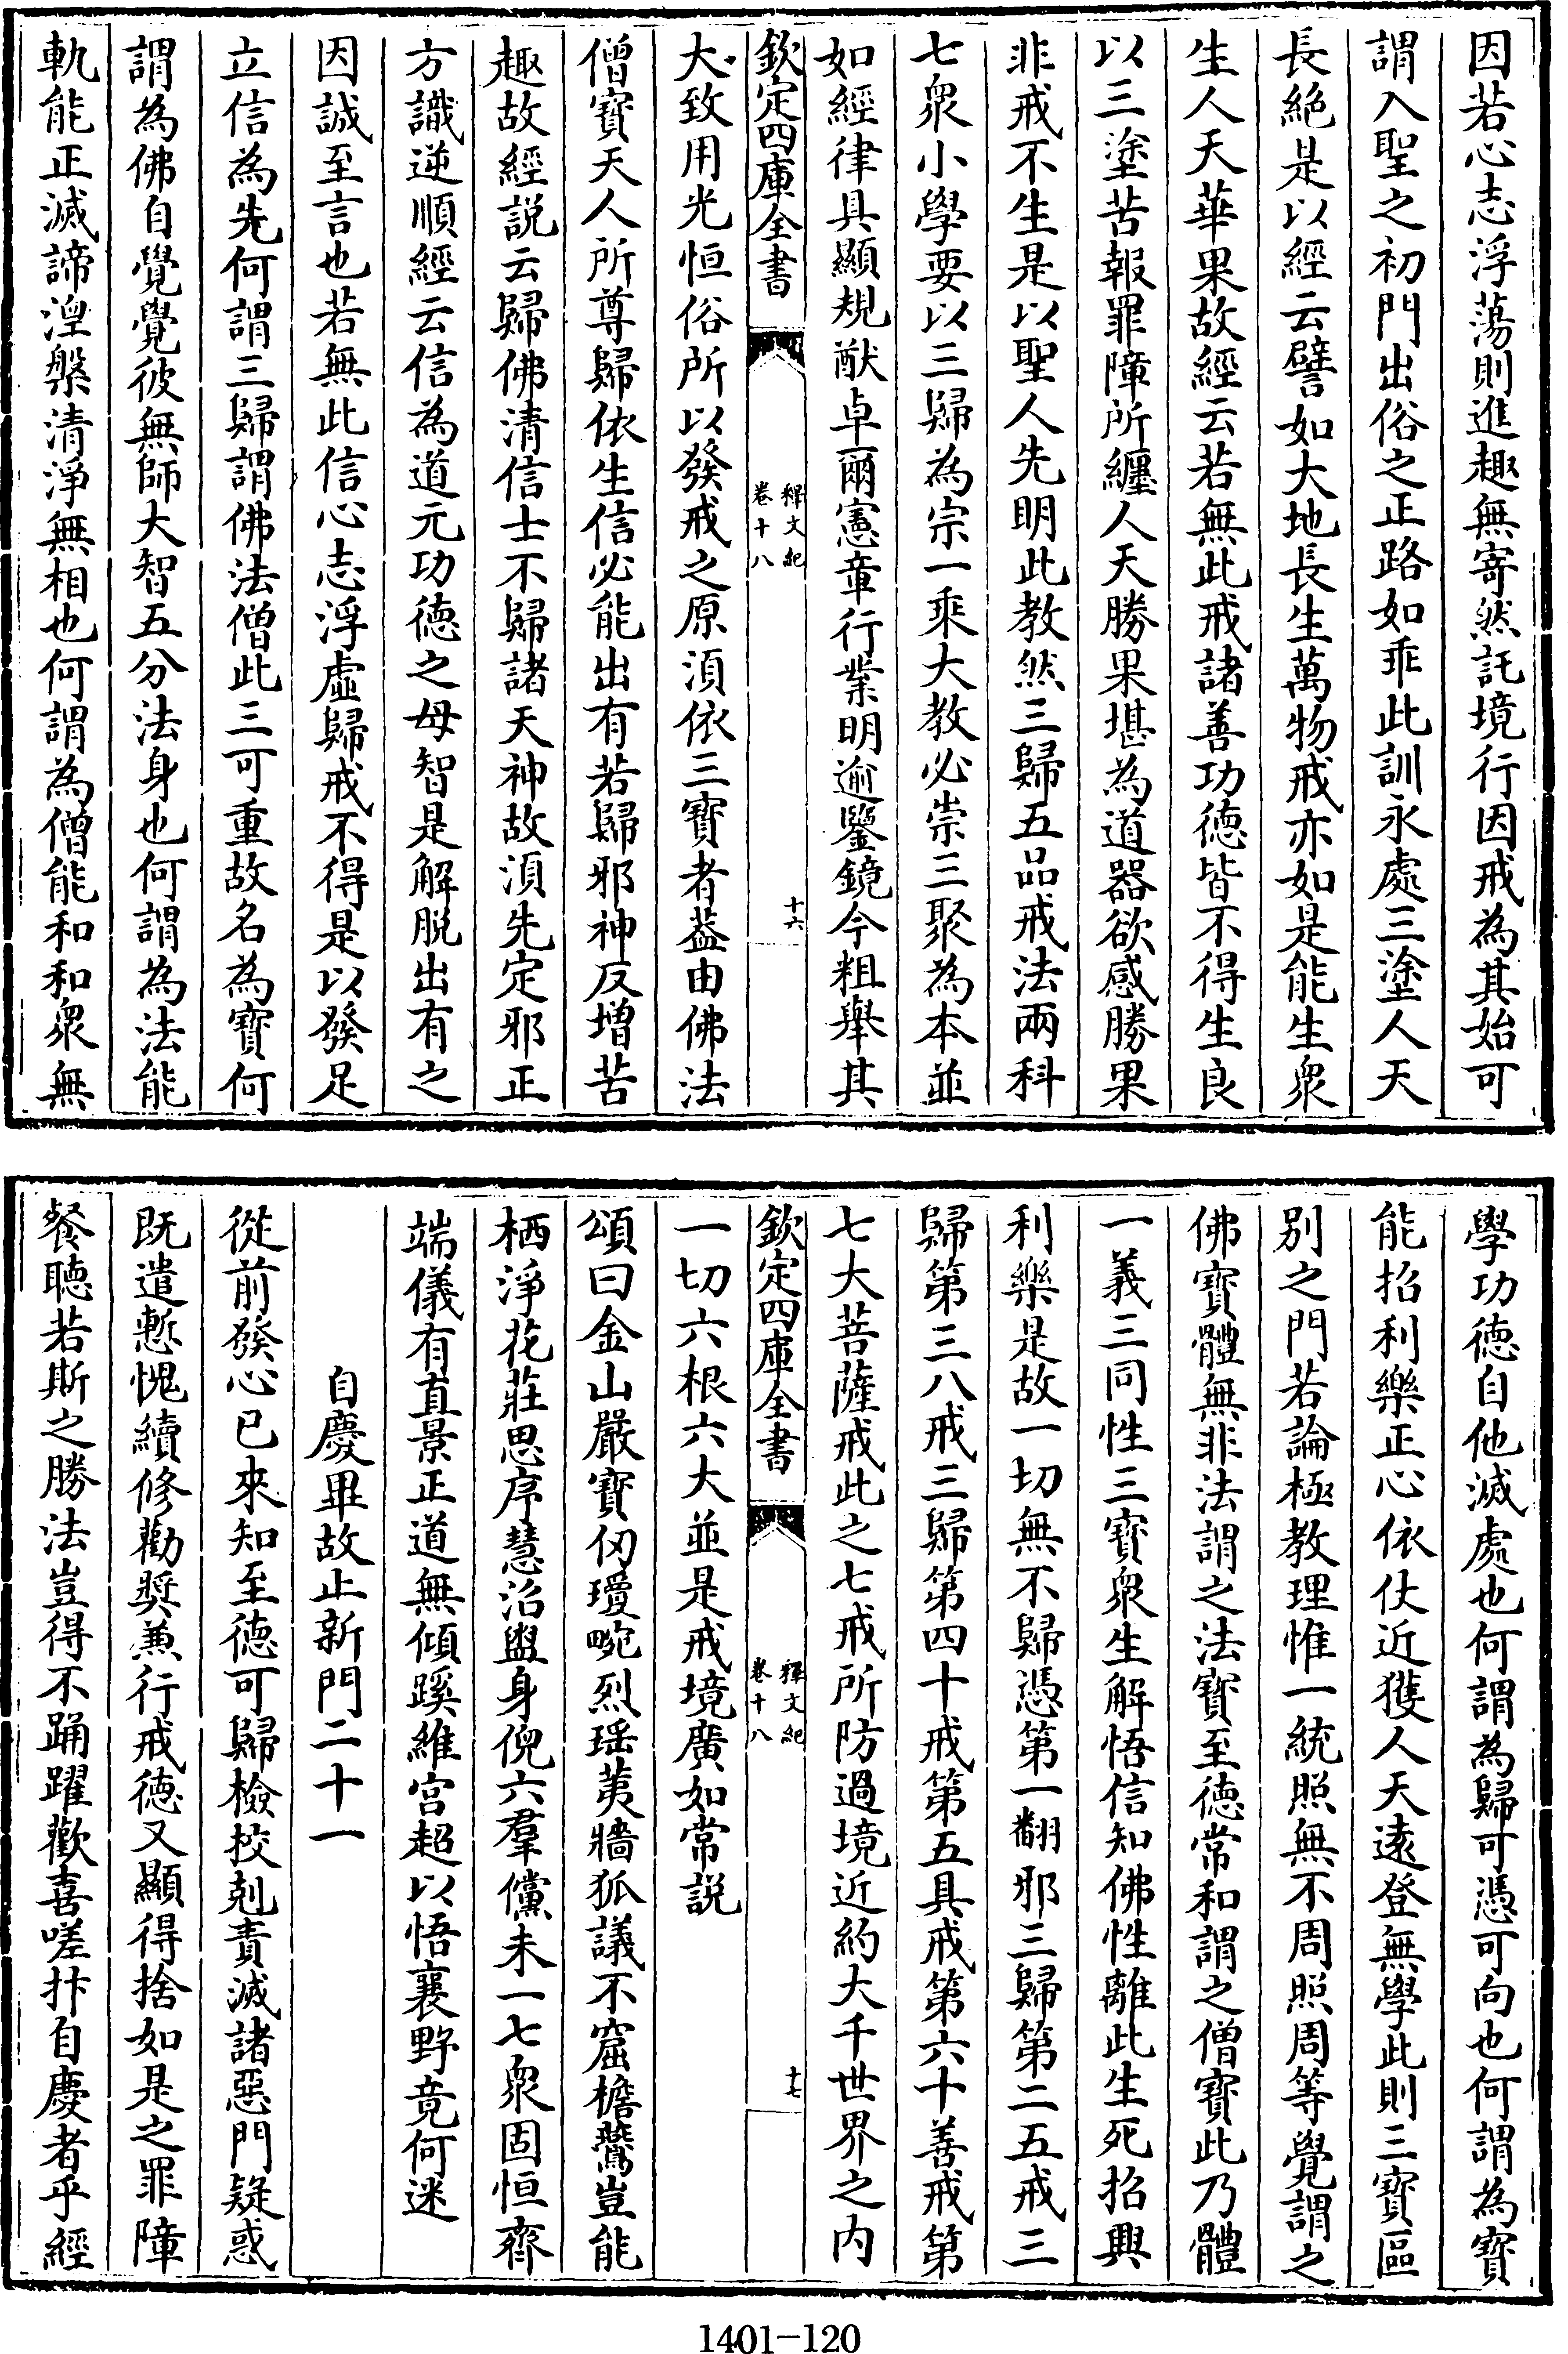 因若心志浮蕩則進趣無寄然託境行因戒為其始可
謂入聖之初門出俗之正路如乖此訓永處三塗人天
長絶是以經云譬如大地長生萬物戒亦如是能生衆
生人天華果故經云若無此戒諸善功德皆不得生良
以三塗苦報罪障所纏人天勝果堪為道器欲感勝果
非戒不生是以聖人先明此教然三歸五品戒法兩科
七衆小學要以三歸為宗一乘大教必崇三聚為本並
如經律具顯規猷卓爾憲章行業明逾鑒鏡今粗舉其
欽定四庫全書
釋文紀
卷十八
十六
大致用光恒俗所以發戒之原須依三寳者蓋由佛法
僧寳天人所尊歸依生信必能出有若歸邪神反増苦
趣故經説云歸佛清信士不歸諸天神故須先定邪正
方識逆順經云信為道元功德之母智是解脱出有之
因誠至言也若無此信心志浮虛歸戒不得是以發足
立信為先何謂三歸謂佛法僧此三可重故名為寳何
謂為佛自覺覺彼無師大智五分法身也何謂為法能
軌能正滅諦湼槃清淨無相也何謂為僧能和和衆無
學功德自他滅處也何謂為歸可憑可向也何謂為寳
能招利樂正心依仗近獲人天遠登無學此則三寳區
别之門若論極教理惟一統照無不周照周等覺謂之
佛寳體無非法謂之法寳至德常和謂之僧寳此乃體
一義三同性三寳衆生解悟信知佛性離此生死招興
利樂是故一切無不歸憑第一翻邪三歸第二五戒三
歸第三八戒三歸第四十戒第五具戒第六十善戒第
七大菩薩戒此之七戒所防過境近約大千世界之内
欽定四庫全書
釋文紀
卷十八
十七
一切六根六大並是戒境廣如常説
頌曰金山嚴寳仞瓊畹烈瑶荑牆狐議不窟檐鷰豈能
栖淨花莊思序慧沼盥身倪六羣儻未一七衆固恒齊
端儀有直景正道無傾蹊維宫超以悟襄野竟何迷
自慶畢故止新門二十一
從前發心已來知至德可歸檢挍剋責滅諸惡門疑惑
既遣慙愧續修勸奬兼行戒德又顯得捨如是之罪障
餐聴若斯之勝法豈得不踊躍歡喜嗟抃自慶者乎經
1401-120